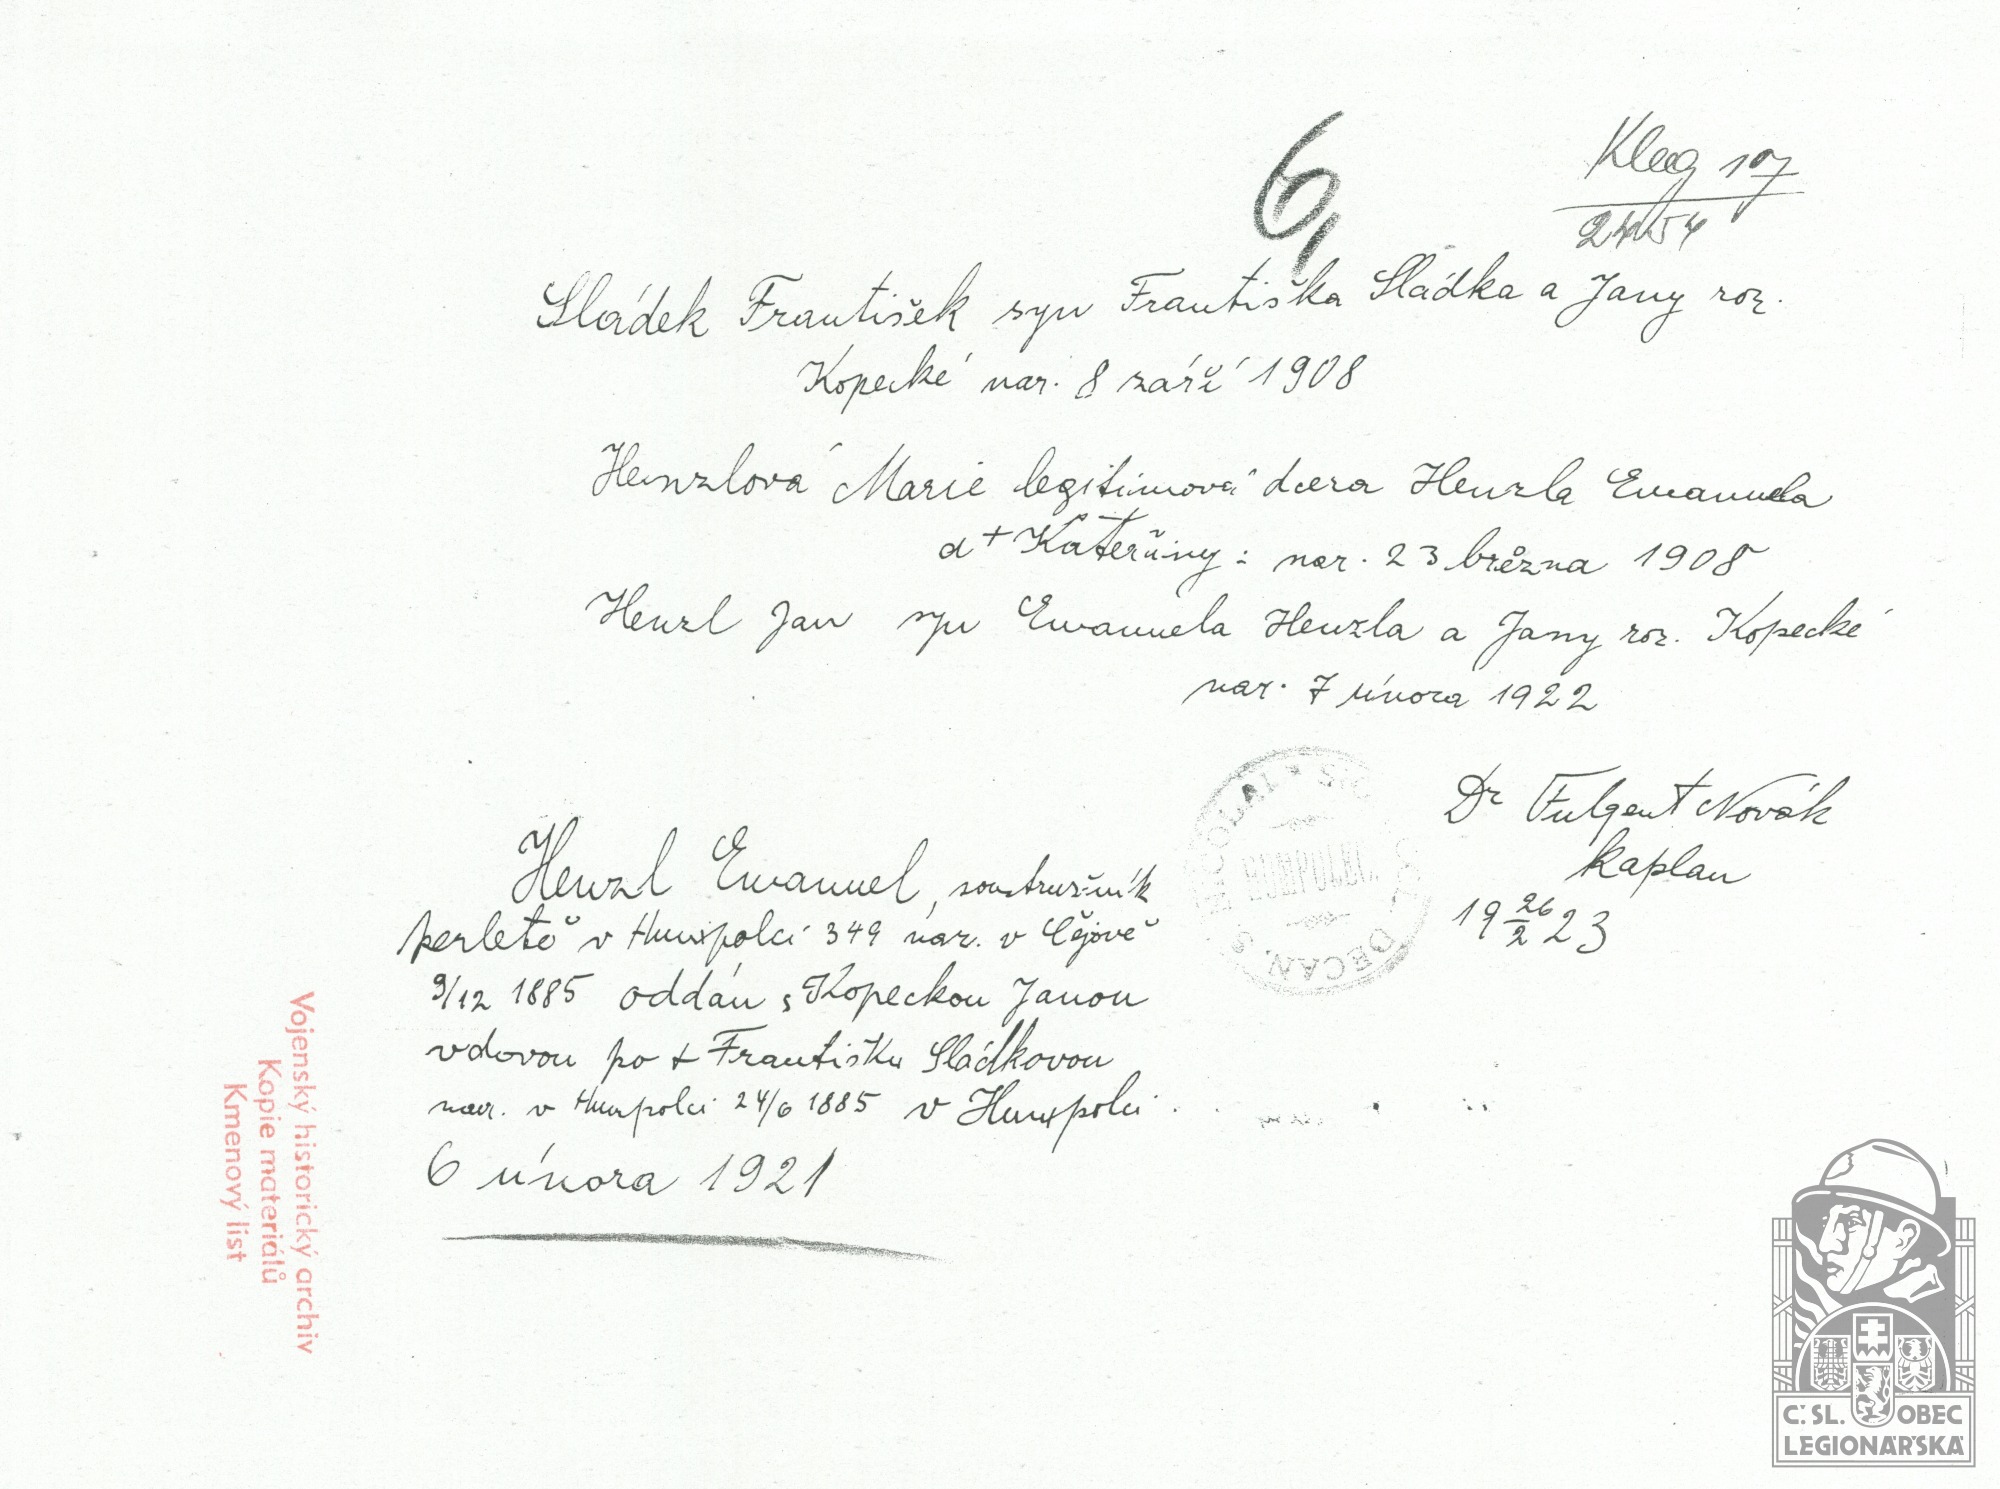 6,
Kleg 107
2454
Sládek František syn Františka Sládka a Jany roz.
Kopecké nar. 8 září 1908
Henzlová Marie legitimová dcera Henzla Emanuela
a + Kateřiny: nar. 23 března 1908
Henzl Jan syn Emanuela Henzla a Jany roz. Kopecké
nar. 7 února 1922
Dr Fulgent Novák
kaplan
19 26/2 23
NICOLAI * S
HUMPOLEC
DECAN
Henzl Emanuel, soustružník
perletě v Humpolci 349 nar. v Čejově
9/12 1885 oddán s Kopeckou Janou
vdovou po + Františku Sládkovou
nar. v Humpolci 24/6 1885 v Humpolci
6 února 1921
Vojenský historický archiv
Kopie materiálů
Kmenový list
Č. SL. OBEC
LEGIONÁŘSKÁ